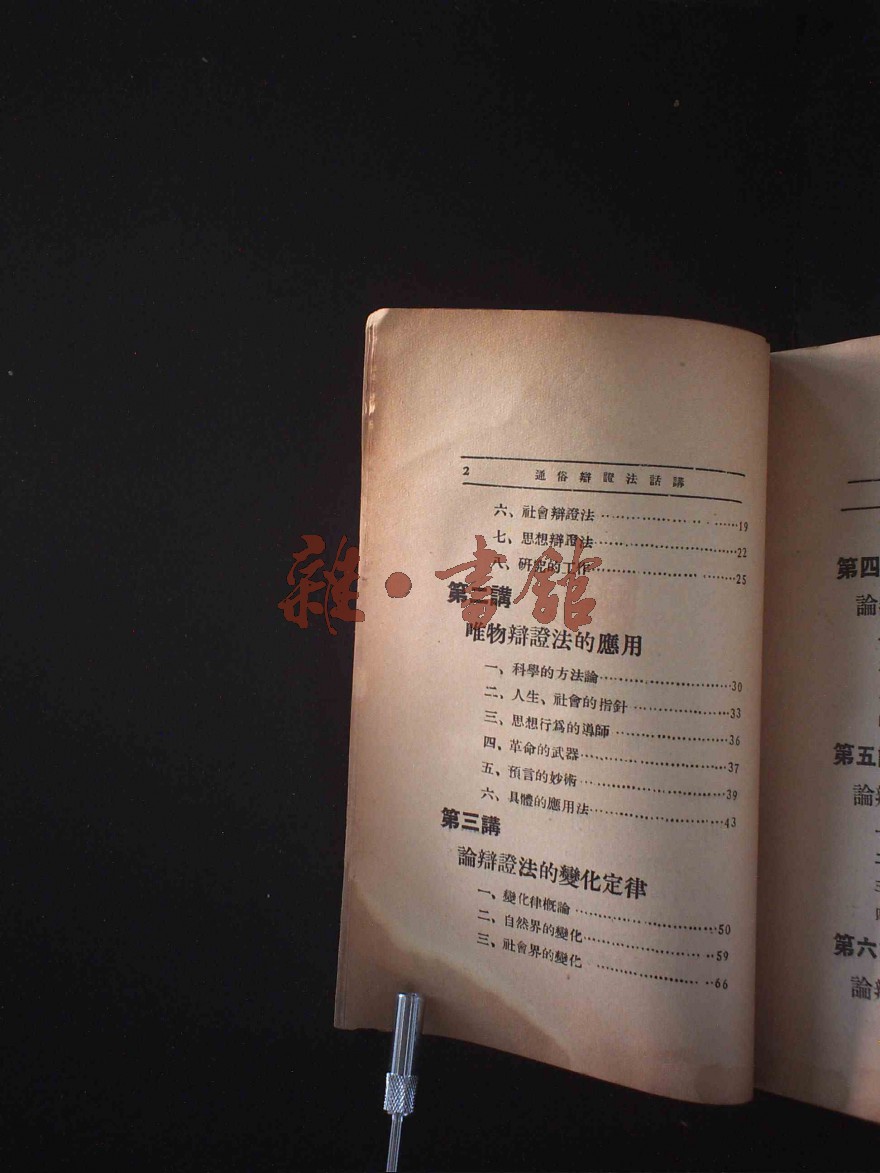 2 通俗辯證法話講
六、社會辯證法……………………19
七、思想辯證法……………………22
八、研究的工作……………………25
第二講
唯物辯證法的應用
一、科學的方法論……………………30
二、人生、社會的指針……………………33
三、思想行爲的導師……………………36
四、革命的武器……………………37
五、預言的妙術……………………39
六、具體的應用法……………………43
第三講
論辯證法的變化定律
一、變化律概論……………………50
二、自然界的變化……………………59
三、社會界的變化……………………66
雜·書館
第四
論
第五
論
第六
論